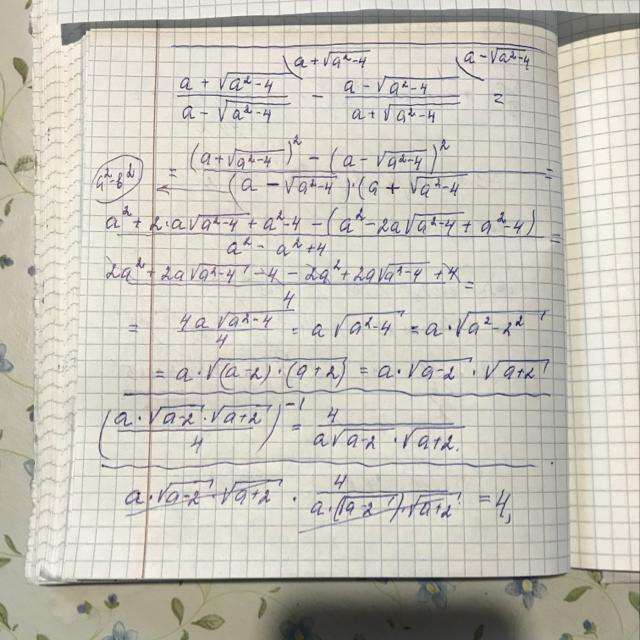 a + √a²-4 a - √a²-4
a + √a²-4 / a - √a²-4 - a - √a²-4 / a + √a²-4 =
a²-b² = (a+√a²-4)² - (a-√a²-4)² / (a-√a²-4)·(a+√a²-4 =
a² + 2·a√a²-4 + a²-4 - (a²-2a√a²-4 + a²-4) / a² - a² + 4 =
2a² + 2a√a²-4 - 4 - 2a² + 2a√a²-4 + 4 / 4 =
= 4a√a²-4 / 4 = a√a²-4 = a·√a²-2²
= a·√(a-2)·(a+2) = a·√a-2·√a+2
(a·√a-2·√a+2 / 4)⁻¹ = 4 / a√a-2·√a+2.
a·√a-2·√a+2 · 4 / a·(√a-2)·√a+2 = 4,